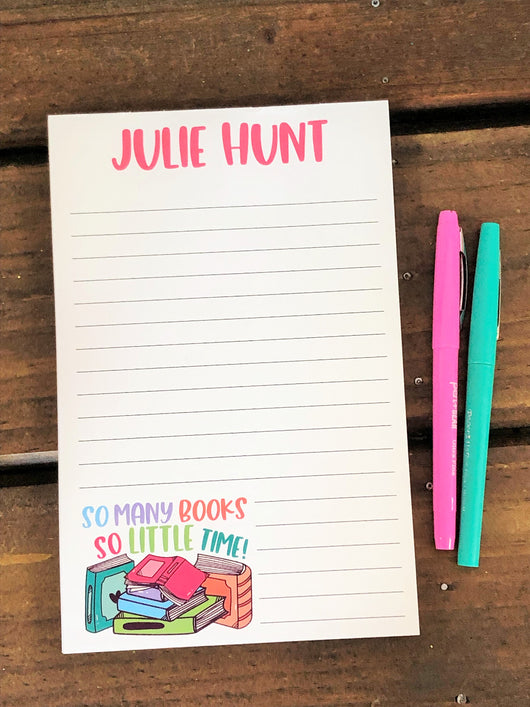 JULIE HUNT
SO MANY BOOKS
SO LITTLE TIME!